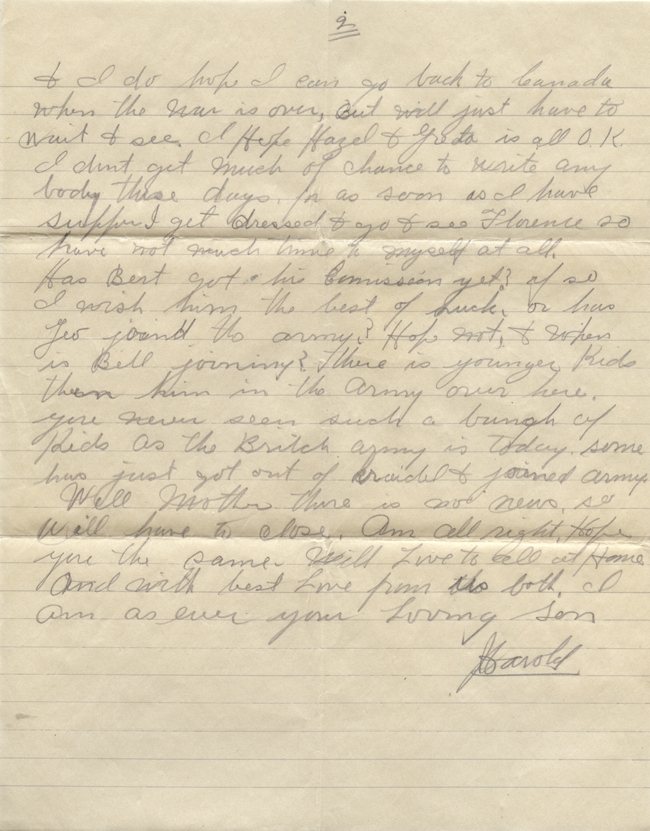 2
& I do hope I can go back to Canada
when the war is over, But will just have to
wait & see. I Hope Hazel & is all O.K.
I dont get much of chance to write any
body these days, as soon as I have
supper I get dressed & go & see Florence so
have not much time to myself at all.
Has Bert got his Comission yet? if so
I wish him the best of luck. or has
Geo joind the army? Hope not, & when
is Bill joining? There is younger Kids
then him in the army over here.
you never seen such a bunch of
Kids as the Britch army is today. some
has just got out of & joined army
Well Mother there is no news, so
will have to close. Am all right, Hope
you're the same. Will Love to all at Home
And with best Love from us both. I
am as ever your Loving Son
Harold